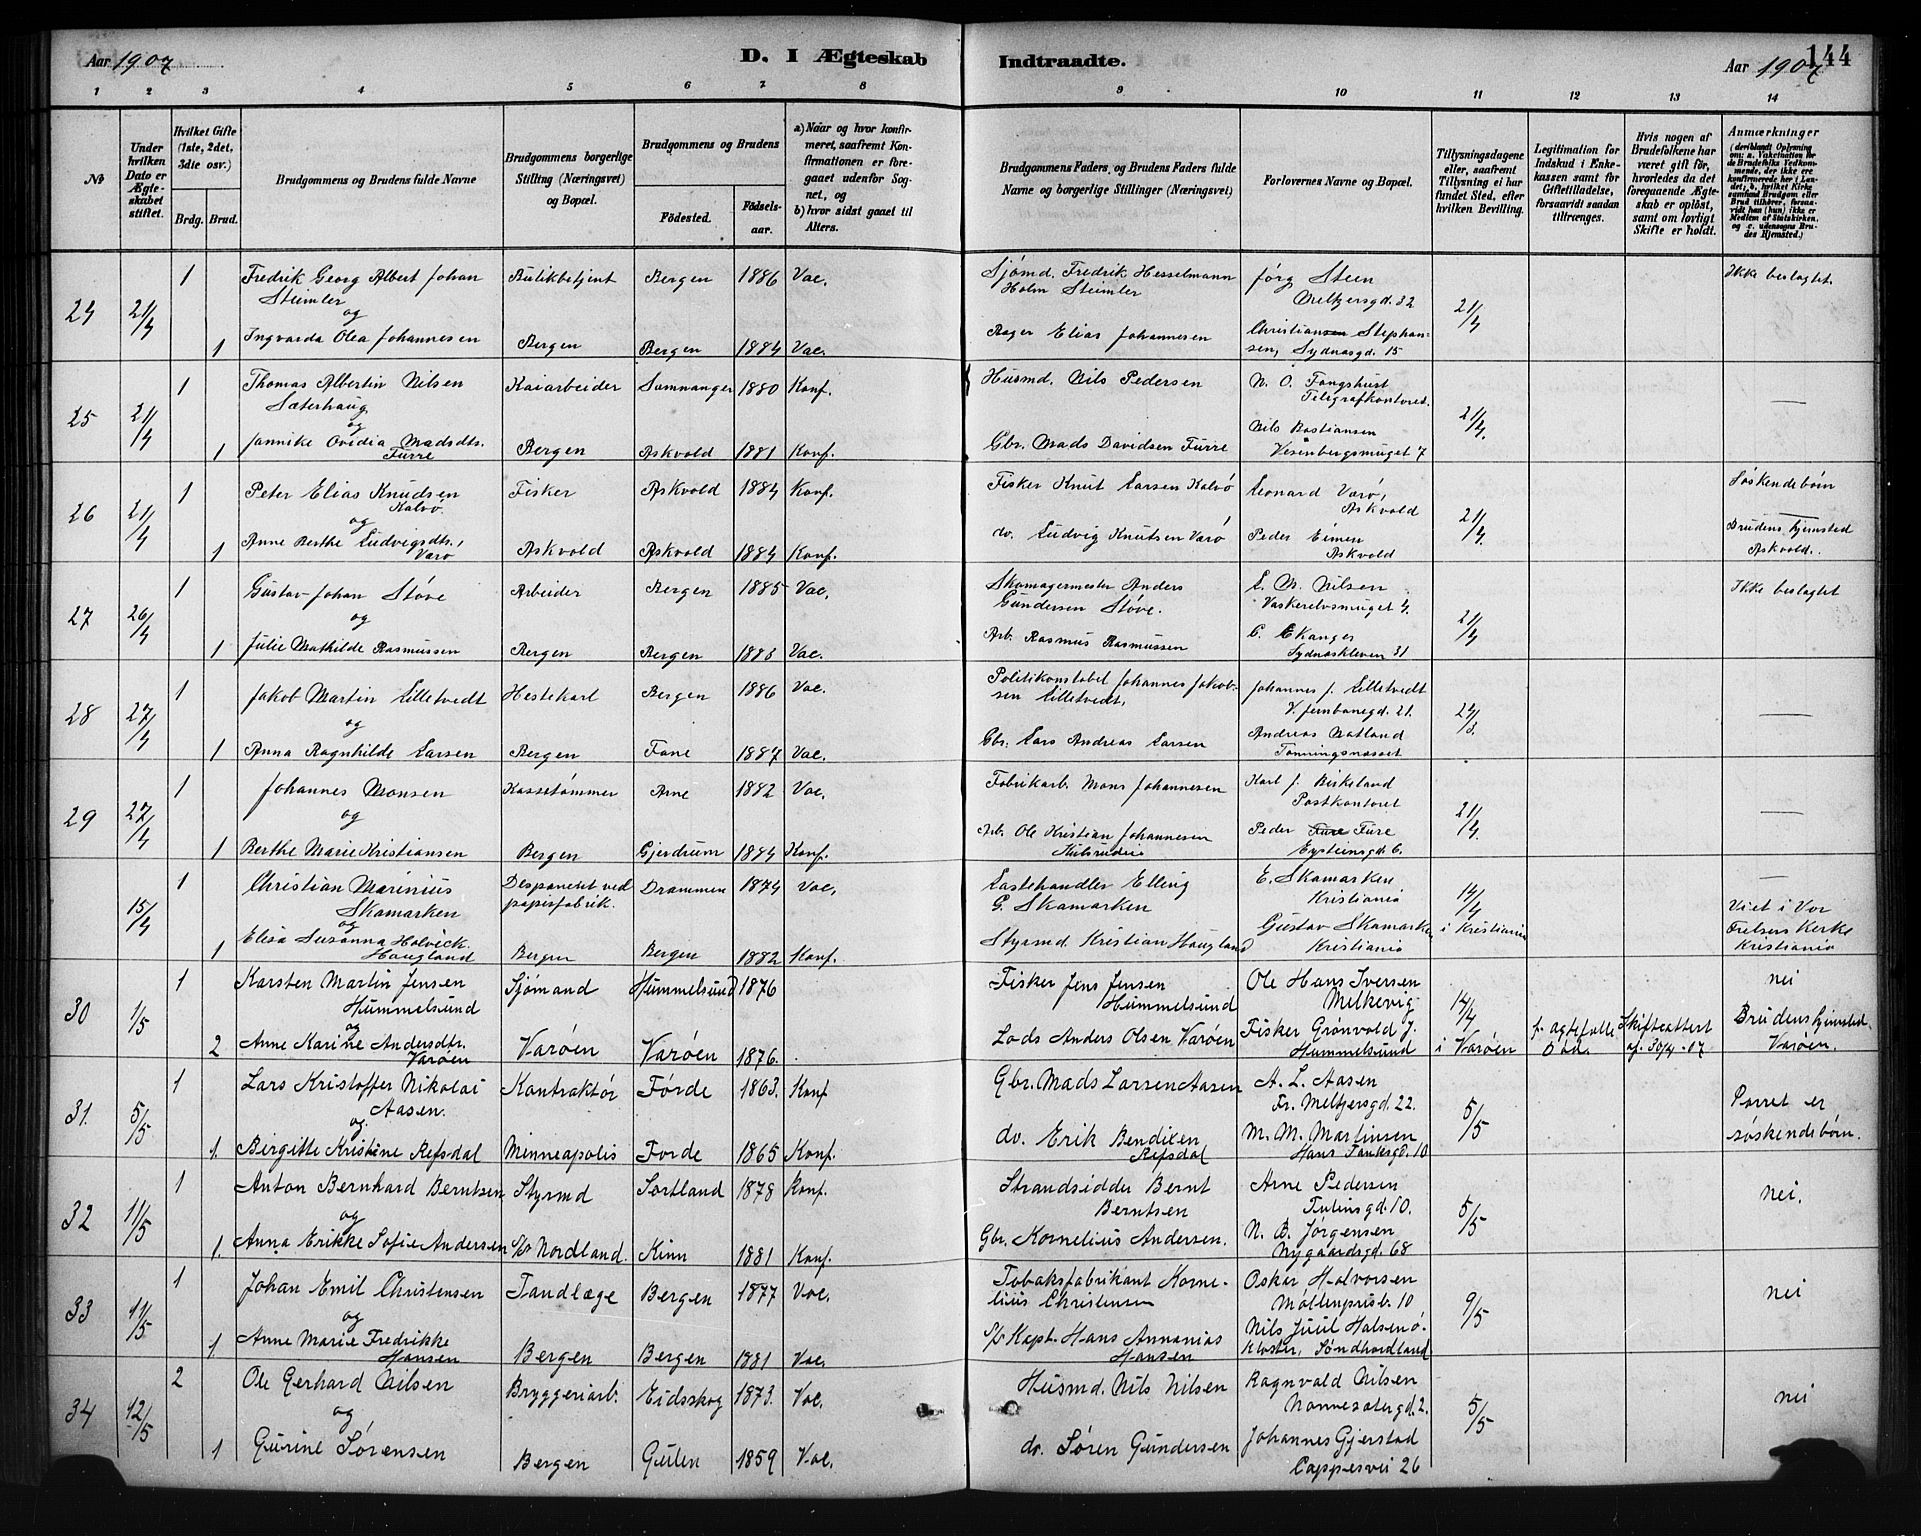 Aar 1907
D. I Ægteskab Indtraadte.
144
Aar 1907
1 2 3 4 5 6 7 8 9 10 11 12 13 14
No
Under hvilken Dato er Ægteskabet stiftet.
Hvilket Gifte (1ste, 2det, 3die osv.)
Brdg. Brud.
Brudgommens og Brudens fulde Navne
Brudgommens borgerlige Stilling (Næringsvei) og Bopæl.
Brudgommens og Brudens
Fødested. Fødselsaar.
a) Naar og hvor konfirmeret, saafremt Konfirmationen er foregaaet udenfor Sognet, og
b) hvor sidst gaaet til Alters.
Brudgommens Faders, og Brudens Faders fulde Navne og borgerlige Stillinger (Næringsvei)
Forlovernes Navne og Bopæl.
Tillysningsdagene eller, saafremt Tillysning ei har fundet Sted, efter hvilken Bevilling.
Legitimation for Indskud i Enkekassen samt for Giftetilladelse, forsaavidt saadan tiltrænges.
Hvis nogen af Brudefolkene har været gift før, hvorledes da det foregaaende Ægteskab er opløst, samt om lovligt Skifte er holdt.
Anmærkninger (deriblandt Oplysning om: a. Vakcination for de Brudefolks Vedkommende, der ikke ere konfirmerede her i Landet; b. hvilket Kirkesamfund Brudgom eller Brud tilhører, forsaavidt han (hun) ikke er Medlem af Statskirken, og c. udensogns Brudes Hjemsted.)
24 21/4 1 Fredrik Georg Albert Johan Butikbetjent Bergen 1886 Vac. Sjømd. Fredrik Hesselmann Jørg Steen Ikke beslægtet.
Steimler Holm Steimler Meltzersgd. 32 21/4
og
1 Ingvarda Olea Johannesen Bergen Bergen 1884 Vac. Bager Elias Johannesen Christian Stephan-
sen, Sydnæsgd. 15
25 21/4 1 Thomas Albertin Nilsen Kaiarbeider Samnanger 1880 Konf. Husmd. Nils Pedersen N. O. Fongshust
Sæterhaug Telegrafkontoret. 21/4.
og Nils Bastiansen
1 Jannike Ovidia Madsdtr. Bergen Askvold 1881 Konf. Gbr. Mads Davidsen Furre Vesenbergsmuget 7
Furre
26 21/4 1 Peter Elias Knudsen Fisker Askvold 1884 Konf. Fisker Knut Larsen Kalvø Leonard Værø, Søskendebørn
Kalvø Askvold 21/4.
og
1 Anne Berthe Ludvigsdtr., Askvold Askvold 1884 Konf. do. Ludvig Knutsen Værø Peder Eimen Brudens hjemsted
Værø Askvold Askvold.
27 26/4 1 Gustav Johan Støve Arbeider Bergen 1885 Vac. Skomagermester Anders E. M. Nilsen Ikke beslægtet
og Gundersen Støve. Vaskerelvsmuget 4. 21/4
1 Julie Mathilde Rasmussen Bergen Bergen 1883 Vac. Arb. Rasmus Rasmussen C. Ekanger
Sydnæskleven 31
28 27/4 1 Jakob Martin Lilletvedt Hestekarl Bergen 1886 Vac. Politikonstabel Johannes Jakob- Johannes J. Lilletvedt
og sen Lilletvedt, V. Jernbanegd. 21. 24/3.
1 Anna Ragnhilde Larsen Bergen Fane 1887 Vac. Gbr. Lars Andreas Larsen Andreas Natland
Tonningsnæsset
29 27/4 1 Johannes Monsen Kassetømmer Arne 1882 Vac. Fabrikarb. Mons Johannesen Karl J. Birkeland
og Postkontoret 21/4.
1 Berthe Marie Kristiansen Bergen Gjerdrum 1884 Konf. Arb. Ole Kristian Johannesen Peder Fure
Eysteinsgd. 6.
15/4 1 Christian Marinius Disponent ved Drammen 1874 Vac. Læstehandler Elling E. Skamarken
Skamarken papirfabrik. G. Skamarken Kristiania 14/4 Viet i Vor
og Gustav Skamarken i Kristiania Frelsers Kirke
1 Elisa Susanna Holvick Bergen Bergen 1882 Konf. Styrmd. Kristian Haugland Kristiania Kristiania
Haugland
30 1/5 1 Karsten Martin Jensen Sjømand Hummelsund 1876 Fisker Jens Jensen Ole Hans Iversen nei
Hummelsund Hummelsund Melkevig 14/4
og
2 Anne Karine Andersdtr. Varøen Varøen 1876. Lods Anders Olsen Varøen Fisker Grønvold J. i Varøen f. ægtefælle død. Skifteattest af 30/4-07 Brudens hjemsted
Varøen Hummelsund Varøen.
31. 5/5 1 Lars Kristoffer Nikolai Kontraktør Førde 1863. Konf Gbr. Mads Larsen Aasen A. L. Aasen
Aasen. Fr. Meltzersgd. 22. 5/5 Parret er
og søskendebørn.
1. Birgitte Kristine Refsdal Minneapolis Førde 1865 Konf. do. Erik Bendixen M. M. Martinsen
Refsdal Hans Tanksgd. 10
32 11/5 1 Anton Bernhard Berntsen Styrmd Sortland 1878 Konf. Strandsidder Bernt Arne Pedersen nei.
og Berntsen Tulinsgd. 10. 5/5
1 Anna Erikke Sofie Andersen S/s Nordland. Kinn 1881 Konf. Gbr. Kornelius Andersen. N. B. Jørgensen
Nygaardsgd. 68
33 11/5 1 Johan Emil Christensen Tandlæge Bergen 1877 Vac. Tobaksfabrikant Korne- Oskar Halvorsen nei
og lius Christensen Møllenprisb. 10 9/5
1. Anne Marie Fredrikke Bergen Bergen 1881 Vac. S/s Kapt. Hans Annanias Nils Juul Halsenø-
Hansen Hansen kloster, Søndhordland
34 12/5 2 Ole Gerhard Nilsen Bryggeriarb. Eidsskog 1873. Vac. Husmd. Nils Nilsen Ragnvald Nilsen nei
og Nonnesætergd. 2. 5/5
1 Gurine Sørensen Bergen Gulen 1859 Vac. do. Søren Gundersen Johannes Gjerstad
Cappesvei 26